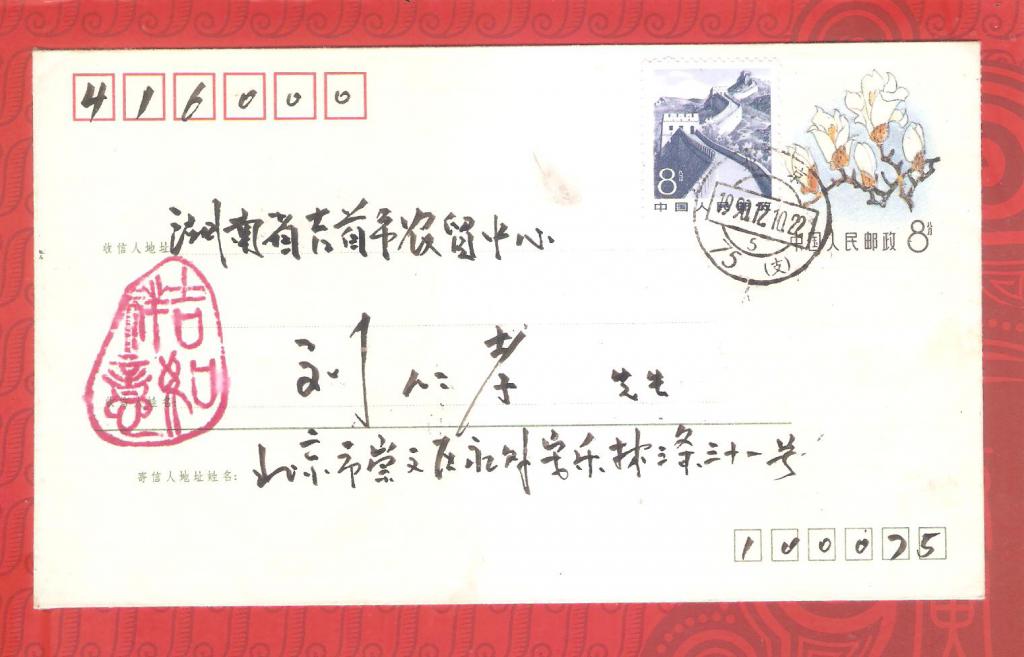 416000
8分
中国人民邮政
1990.12.10.22
5
75
(支)
中国人民邮政 8分
收信人地址:
湖南省吉首市农贸中心
吉祥如意
收信人姓名:
刘仁孝 先生
寄信人地址姓名:
北京市崇文区永外安乐林三条三十一号
100075